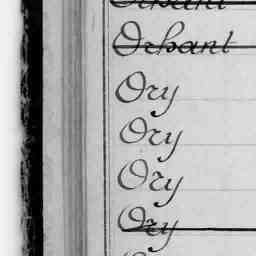 Orhant
Orhant
Ory
Ory
Ory
Ory